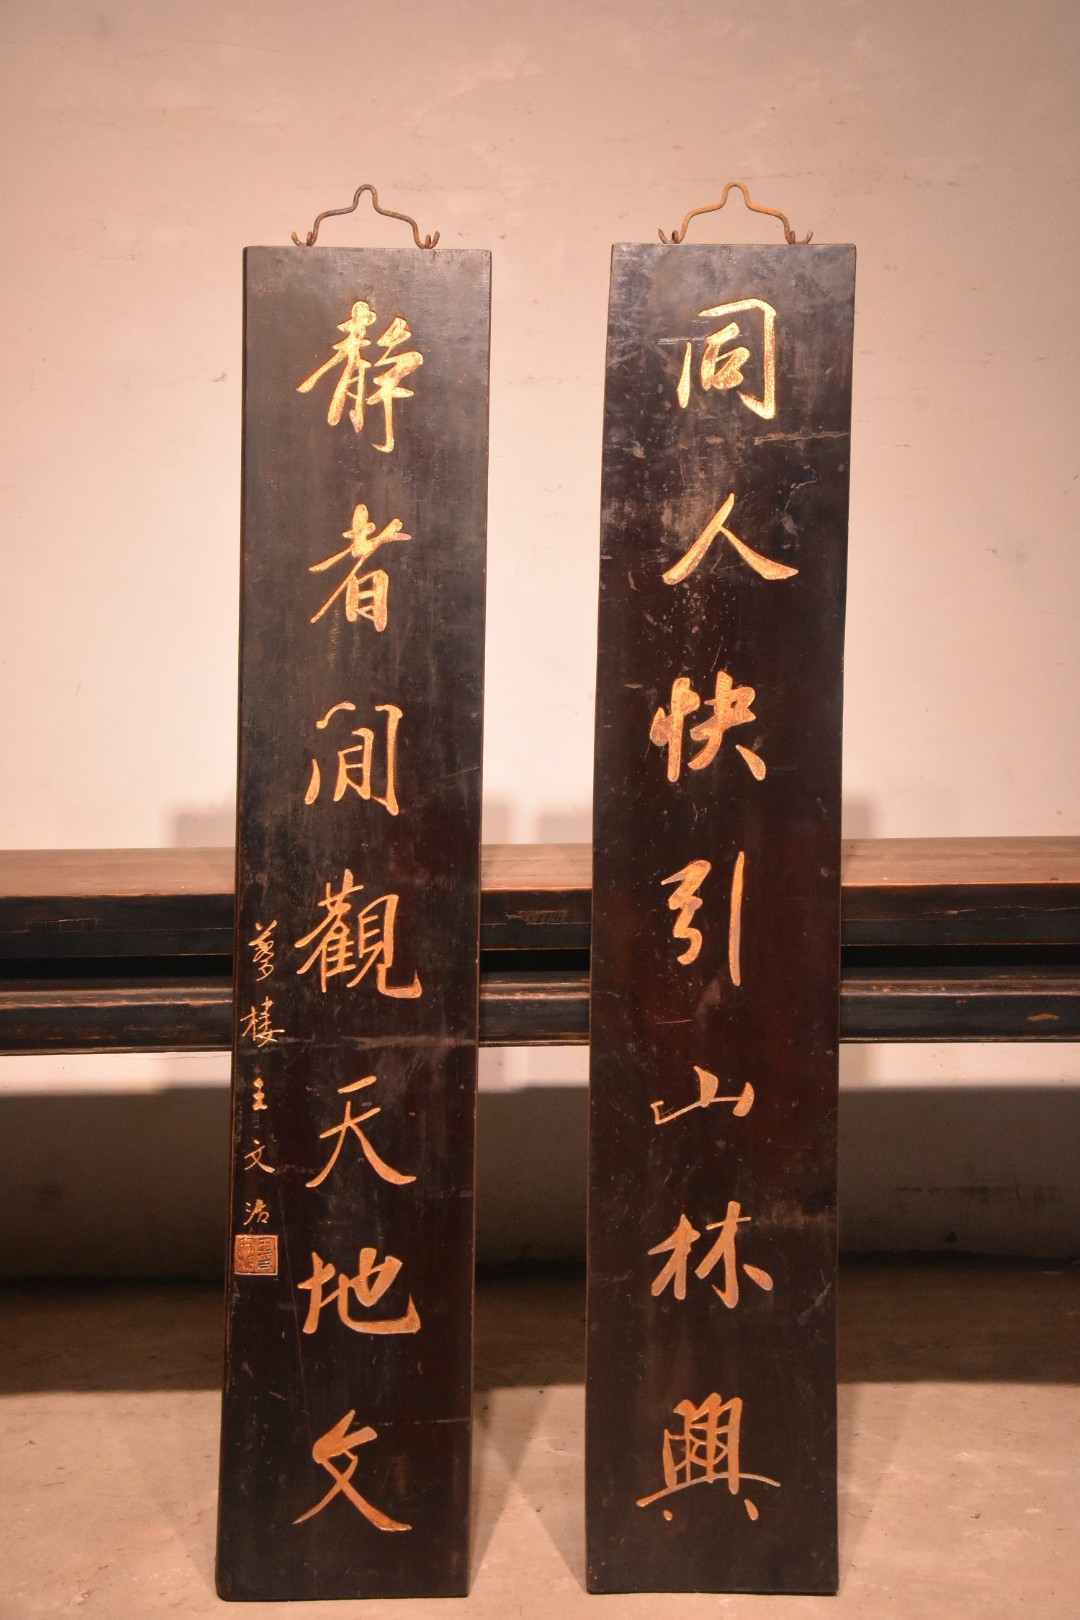 同人快引山林興
静者閒觀天地文
夢樓王文治